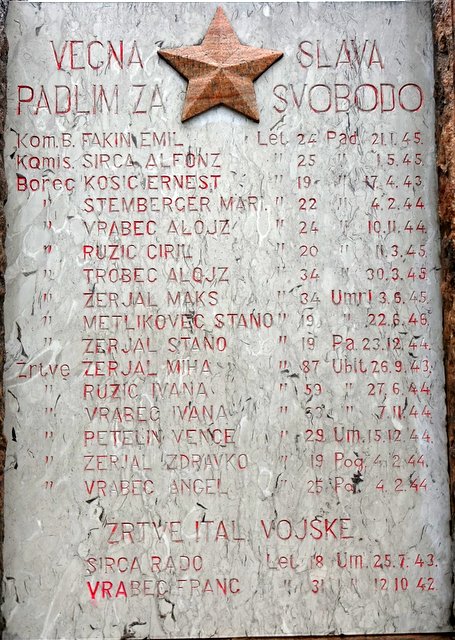 VEČNA SLAVA
PADLIM ZA SVOBODO
Kom. B. FAKIN EMIL Let. 24 Pad. 21.1.45.
Komis. SIRCA ALFONZ " 25 " 1.5.45.
Borec KOSIC ERNEST " 19 " 17.4.43.
" STEMBERGER MARI. " 22 " 4.2.44
" VRABEC ALOJZ " 24 " 10.11.44
" RUZIC CIRIL " 20 " 11.3.45
" TROBEC ALOJZ " 34 " 30.3.45
" ZERJAL MAKS " 34 Umrl 3.6.45
" METLIKOVEC STANO " 19 " 22.6.46.
" ZERJAL STANO " 19 Pa. 23.12.44.
Zrtve ZERJAL MIHA " 87 Ubit 26.9.43.
" RUZIC IVANA " 59 " 27.6.44
" VRABEC IVANA " " 7.11.44
" PETELIN VENCE " 29 Um. 15.12.44.
" ZERJAL ZDRAVKO " 19 Pog. 4.2.44.
" VRABEC ANGEL " 25 4.2.44
ZRTVE ITAL. VOJSKE.
SIRCA RADO Let. 18 Um. 25.7.43.
VRABEC FRANC " 31 " 12.10.42.